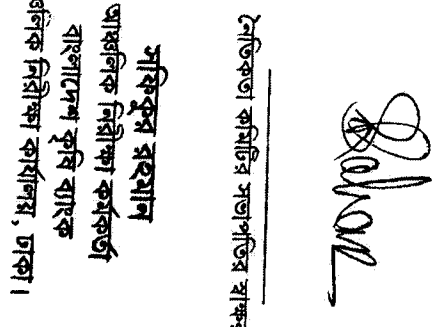 নৈতিকতা কমিটির সভাপতির
সফিকুর রহমান
আঞ্চলিক নিরীক্ষা কর্মকর্তা
বাংলাদেশ কৃষি ব্যাংক
নিরীক্ষা কার্যালয়, ঢাকা।